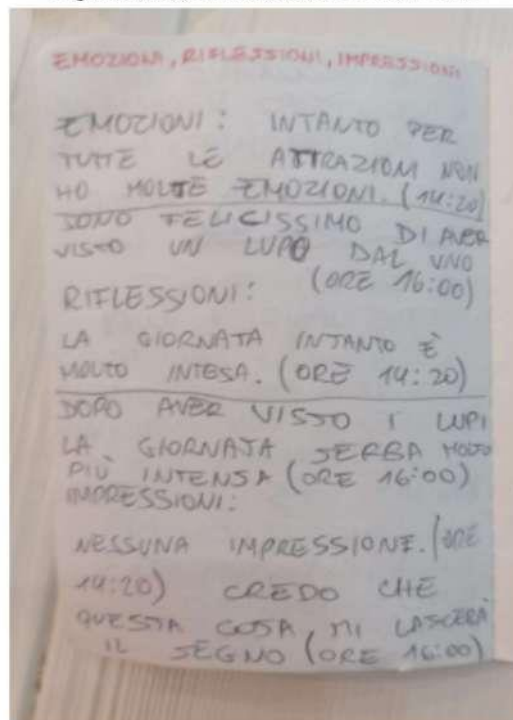 EMOZIONI, RIFLESSIONI, IMPRESSIONI
EMOZIONI: INTANTO PER
TUTTE LE ATTRAZIONI NON
HO MOLTE EMOZIONI. (14:20)
SONO FELICISSIMO DI AVER
VISTO UN LUPO DAL VIVO
(ORE 16:00)
RIFLESSIONI:
LA GIORNATA INTANTO È
MOLTO INTESA. (ORE 14:20)
DOPO AVER VISTO I LUPI
LA GIORNATA SERBA MOLTO
PIÙ INTENSA (ORE 16:00)
IMPRESSIONI:
NESSUNA IMPRESSIONE. (ORE
14:20) CREDO CHE
QUESTA COSA MI LASCERÀ
IL SEGNO (ORE 16:00)